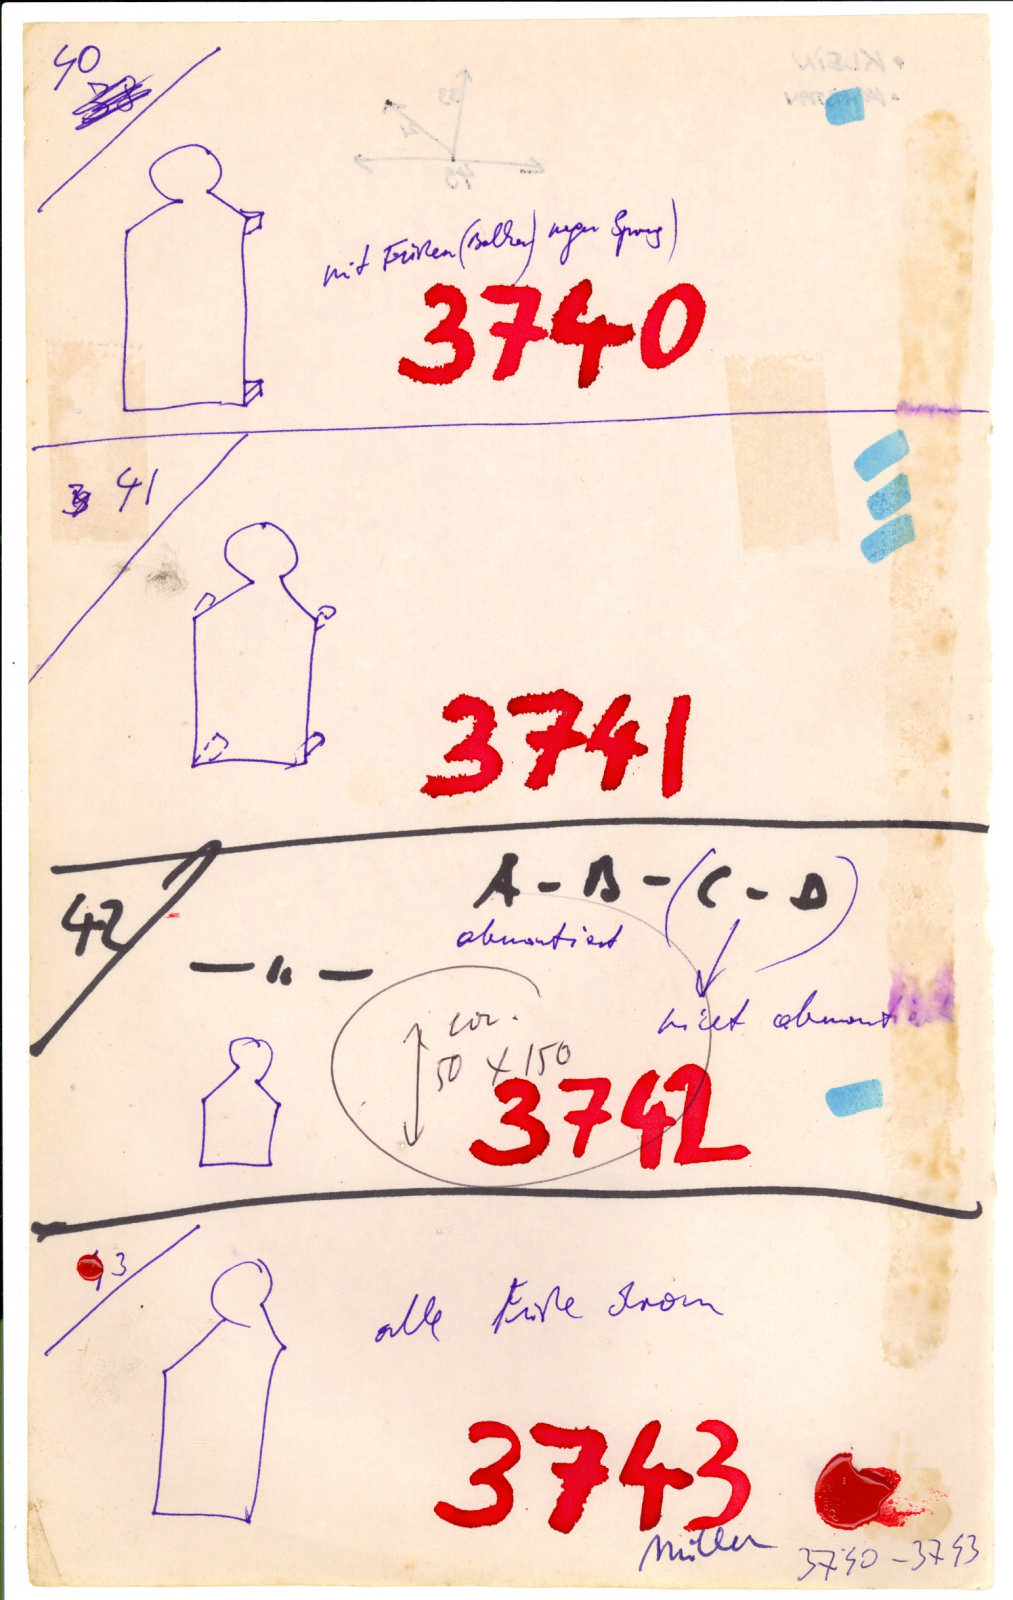 40
mit Füßen (Balken) wegen Sprung)
3740
41
3741
42
A - B - (C - D)
abmontiert
— " —
nicht abmont
cor.
50 x 150
3742
43
alle Füße dran
3743
Müller
3740 - 3743